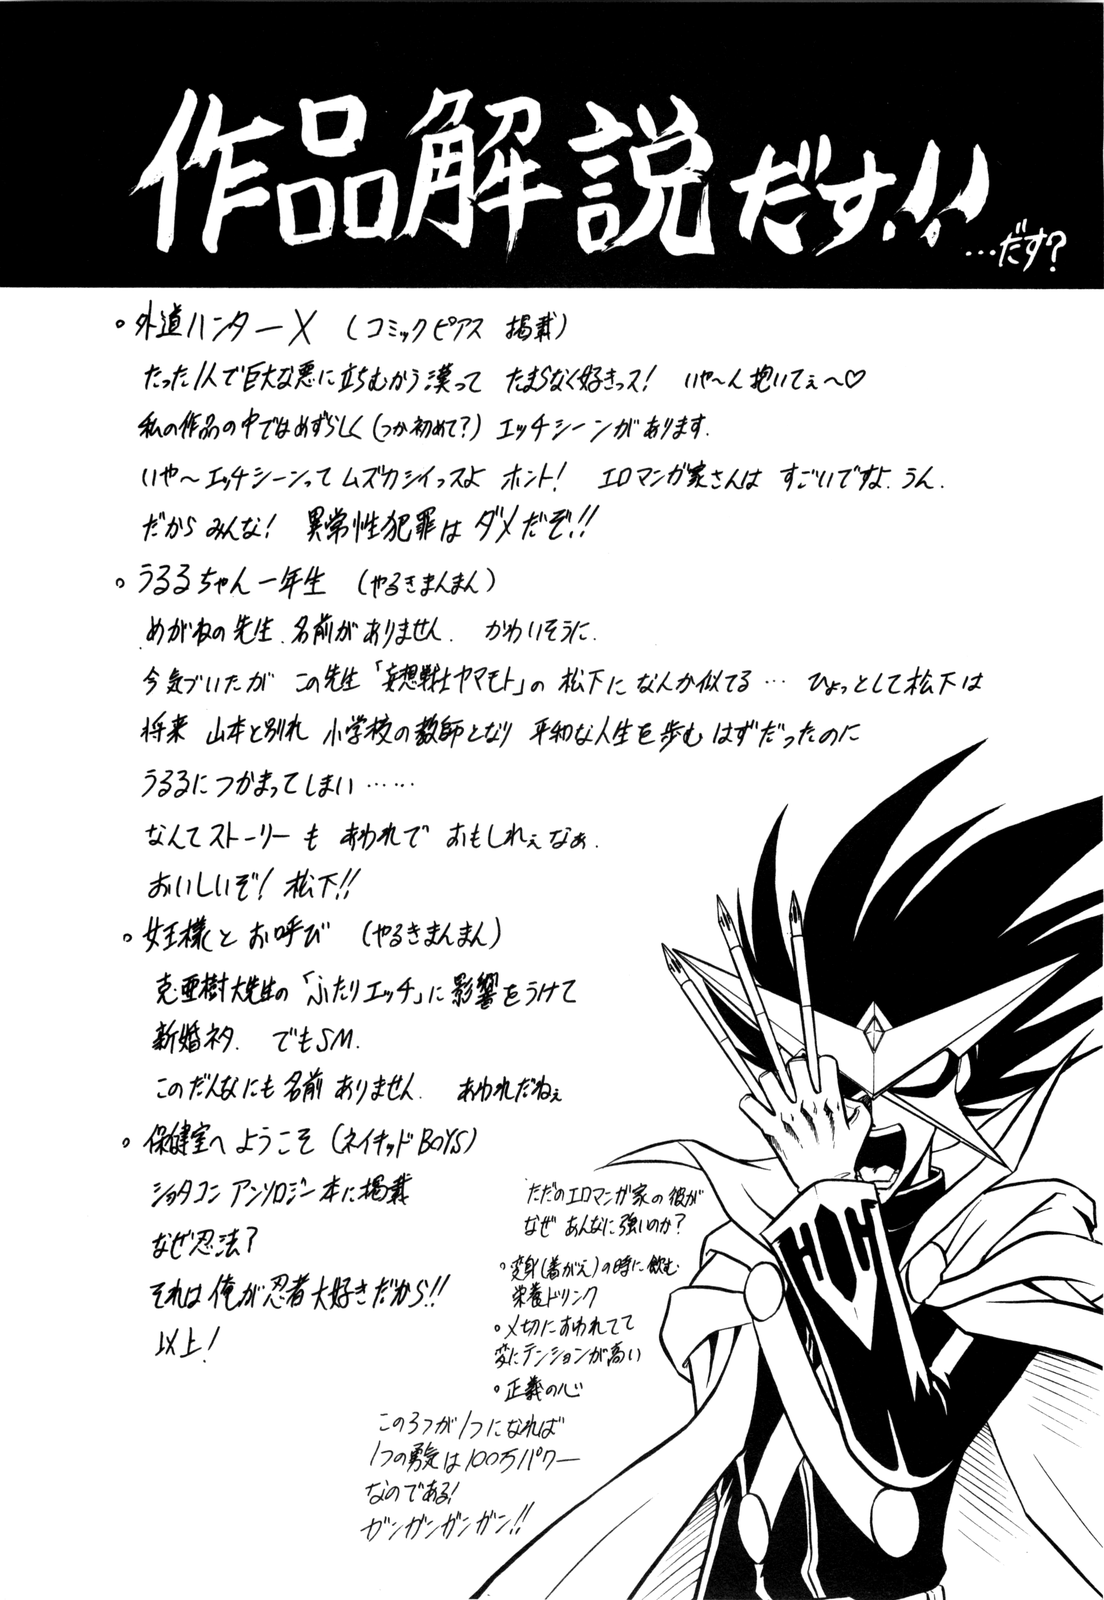 作品解説だす!!
…だす?
○外道ハンターX (コミックピアス 掲載)
たった1人で巨大な悪に立ちむかう漢って たまらなく好きっス! いや〜ん抱いてぇ〜♡
私の作品の中ではめずらしく(つか初めて?) エッチシーンがあります.
いや〜エッチシーンって ムズカシイっスよ ホント! エロマンガ家さんは すごいですよ.うん.
だから みんな! 異常性犯罪は ダメだぞ!!
○うるるちゃん一年生 (やるきまんまん)
めがねの先生.名前がありません. かわいそうに.
今気づいたが この先生「妄想戦士ヤマモト」の 松下になんか似てる… ひょっとして松下は
将来 山本と別れ 小学校の教師となり 平和な人生を歩む はずだったのに
うるるにつかまってしまい……
なんてストーリーも あわれで おもしれぇなぁ.
おいしいぞ! 松下!!
○女王様とお呼び (やるきまんまん)
克・亜樹大先生の「ふたりエッチ」に影響をうけて
新婚ネタ. でもSM.
このだんなにも名前 ありません. あわれだねぇ
○保健室へようこそ (ネイキッドBOYS)
ショタコン アンソロジー本に掲載
なぜ忍法?
それは 俺が忍者大好きだから!!
以上!
ただのエロマンガ家の彼が
なぜ あんなに強いのか?
○変身(着がえ)の時に飲む
栄養ドリンク
○〆切におわれてて
変にテンションが高い
○正義の心
この3つが1つになれば
1つの勇気は100万パワー
なのである!
ガンガンガンガン!!
HVH